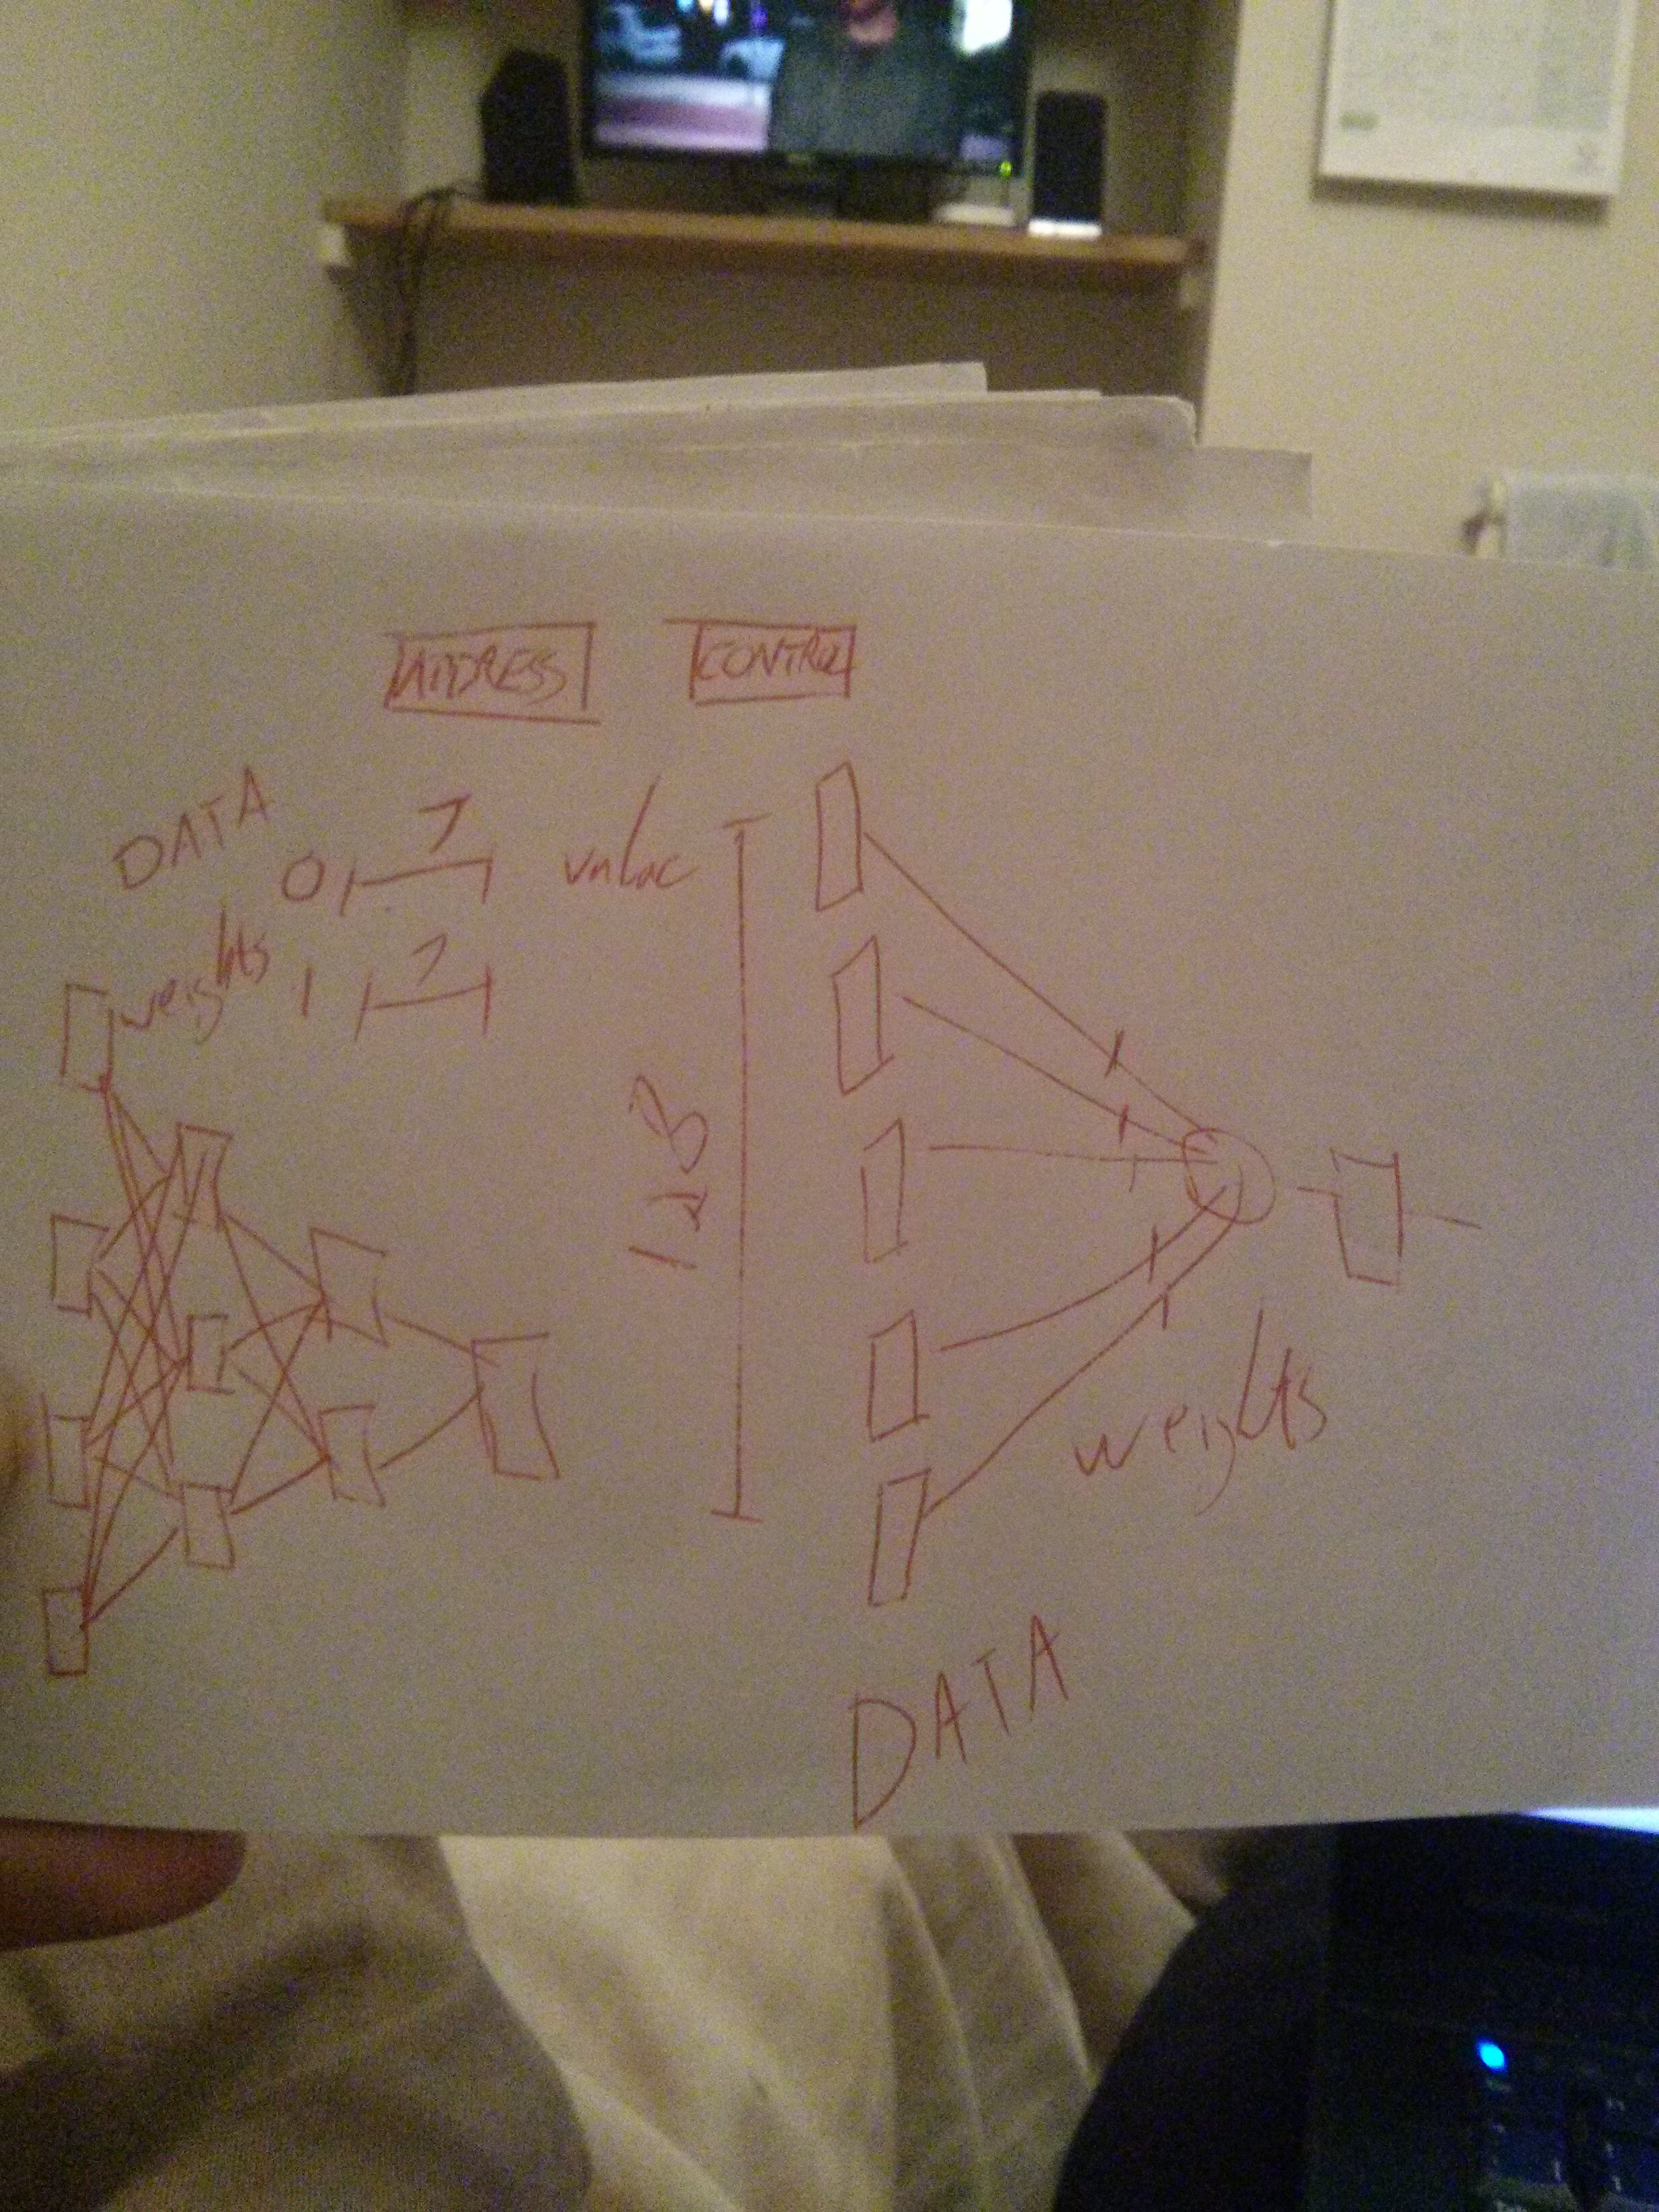 ADDRESS CONTROL
DATA 0 7 value
weights 1 7
128
weights
DATA